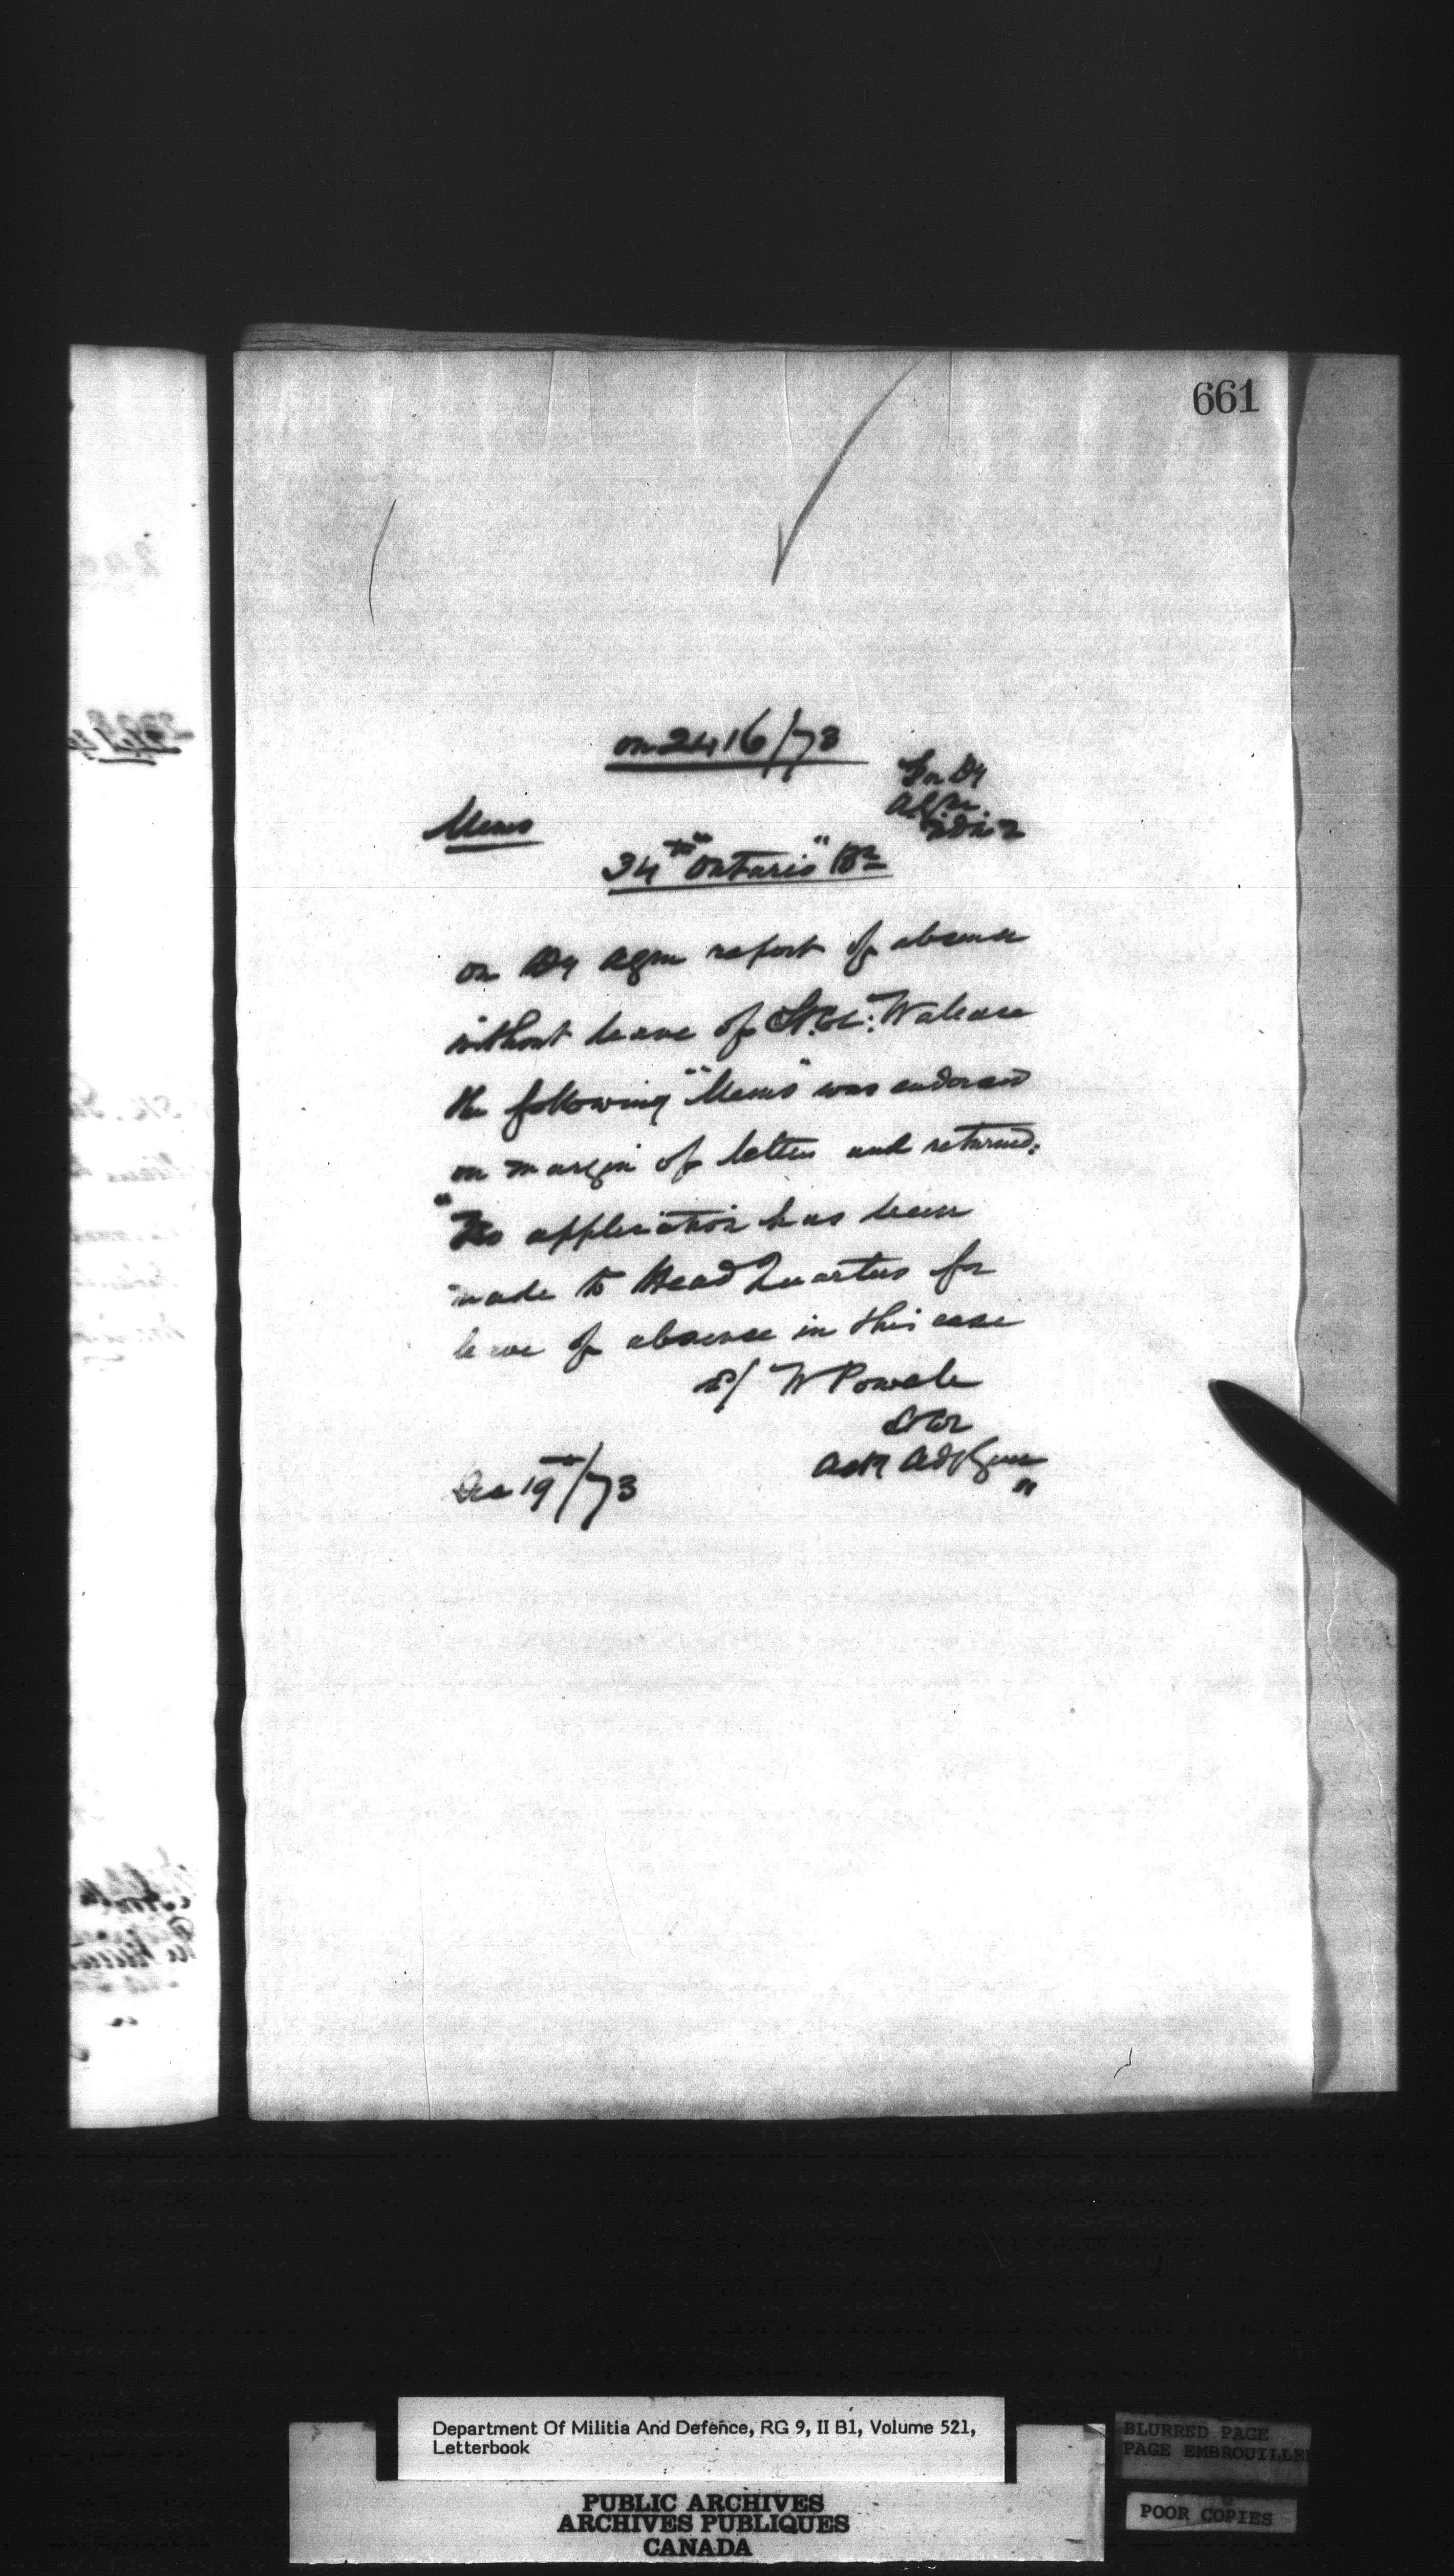 661
on 2416/73
For Dy
Memo
34th "Ontario" Bn
on Dy agm report of absence
without leave of Lt. Col: Wallace
the following "Memo" was endorsed
on margin of letter and returned:
"No application has been
made to Head Quarters for
leave of absence in this case
W Powell
Lt Col
Actg Adj Genl
Dec 19th/73
Department Of Militia And Defence, RG 9, II B1, Volume 521,
Letterbook
BLURRED PAGE
PAGE EMBROUILLEE
POOR COPIES
PUBLIC ARCHIVES
ARCHIVES PUBLIQUES
CANADA